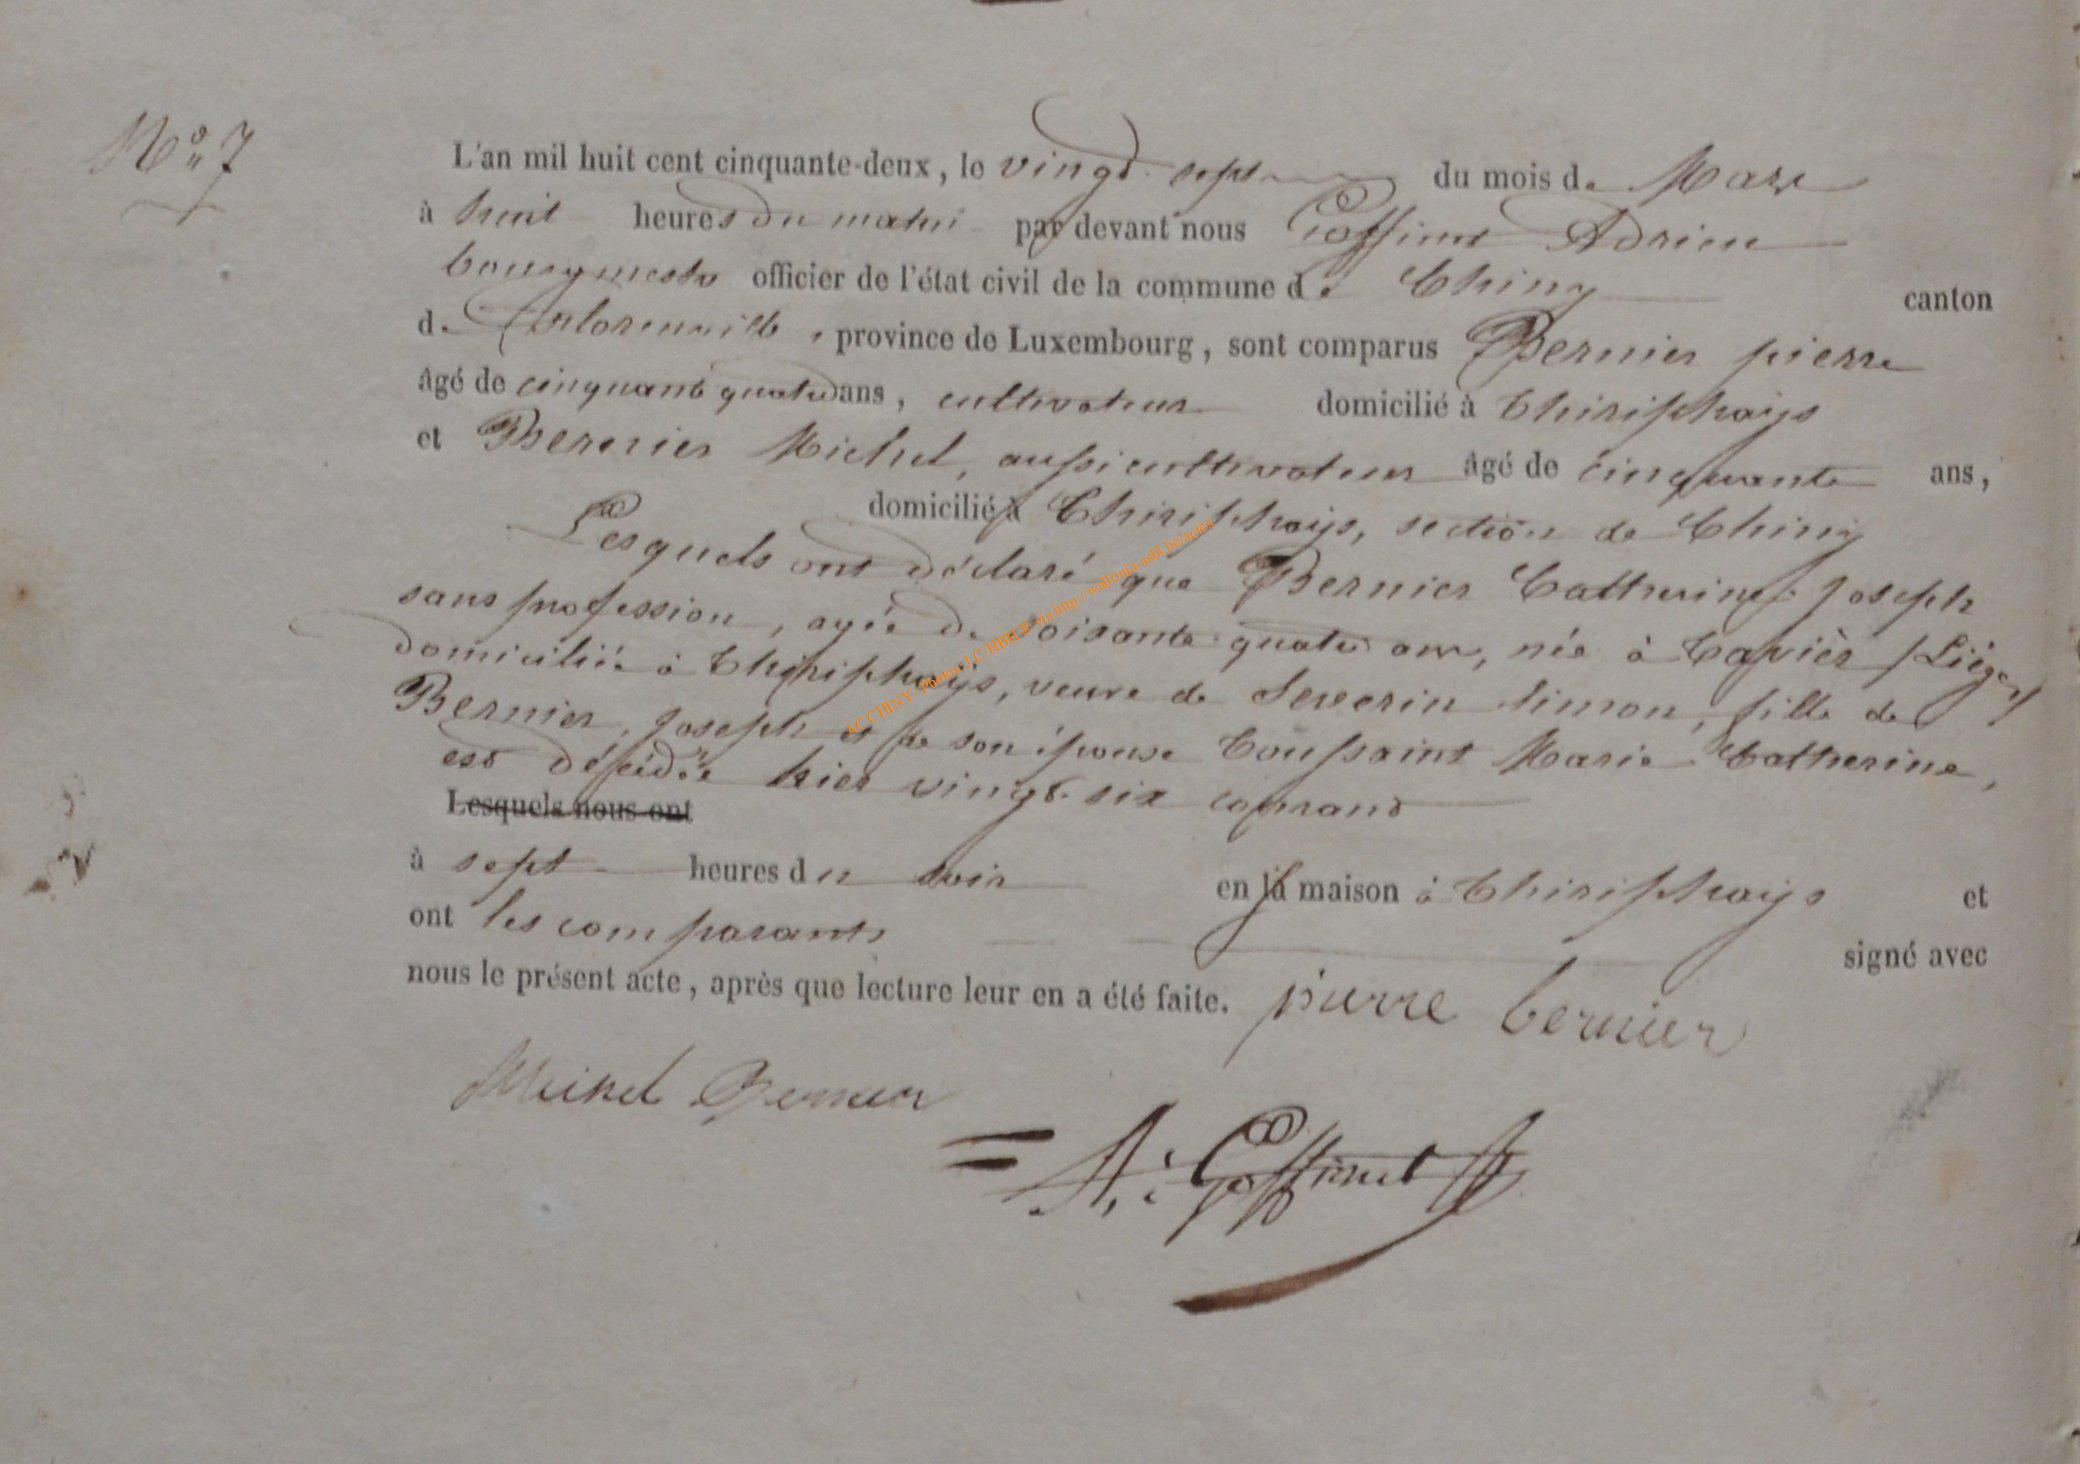 N° 7
L'an mil huit cent cinquante-deux, le vingt-sept du mois de Mars
à huit heures du matin par devant nous Goffinet Adrien
bourgmestre officier de l'état civil de la commune de Chiny canton
de Florenville, province de Luxembourg, sont comparus Bernier pierre
âgé de cinquante quatre ans, cultivateur domicilié à Thiriphays
et Bernier Michel, aussi cultivateur âgé de cinquante ans,
domicilié à Thiriphays, section de Chiny
Lesquels ont déclaré que Bernier Catherine Joseph
sans profession, agée de soixante quatre ans, née à Tavièr (Liége)
domiciliée à Thiriphays, veuve de Severin Simon, fille de
Bernier, Joseph et de son épouse Toussaint Marie Catherine,
est décédée hier vingt-six courant
Lesquels nous ont
à sept heures du soir en sa maison à Thiriphays et
ont les comparants signé avec
nous le présent acte, après que lecture leur en a été faite. pierre bernier
Michel Bernier
A: Goffinet
AC CHINY - Photos J.C HBILE via http://wallonia-asbl.be/actes